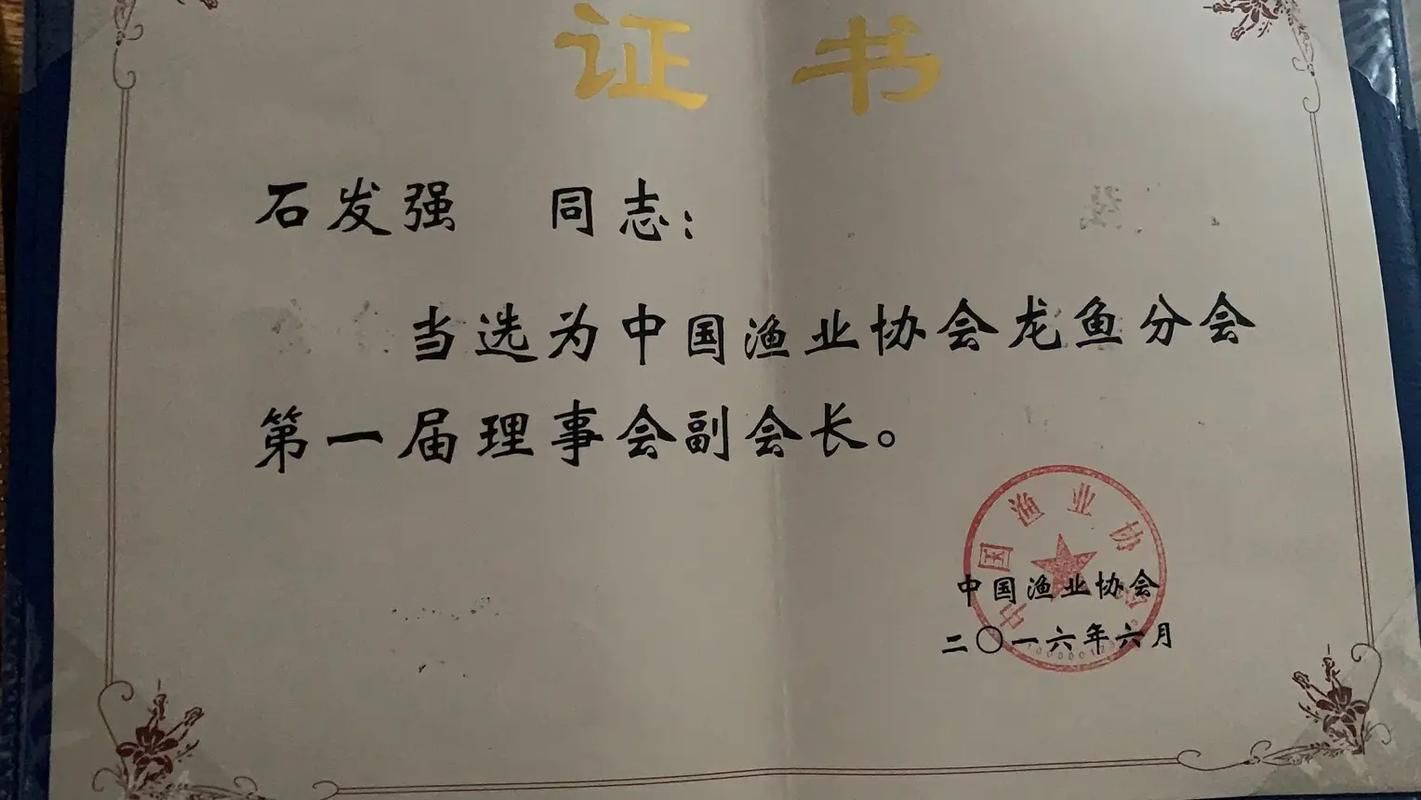 证书
石发强 同志：
当选为中国渔业协会龙鱼分会
第一届理事会副会长。
中国渔业协会
中国渔业协会
二〇一六年六月